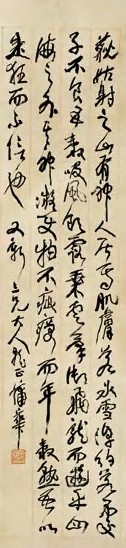 藐姑射之山有神人居焉肌膚若冰雪淖約若處
子不食五穀吸風飲露乘雲氣御飛龍而遊乎四
海之外其神凝使物不疵癘而年穀熟吾以
是狂而不信也 又新 大人